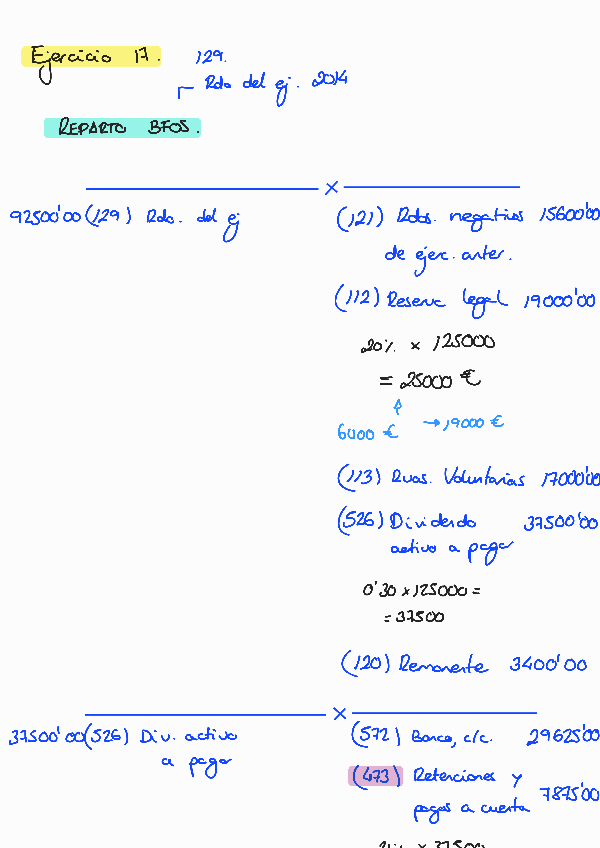 Ejercicio 17. 129.
Rdo del ej. 2014
REPARTO BFOS.
92500'00 (129) Rdo. del ej
(121) Rdos. negativos 15600'00
de ejerc. anter.
(112) Reserva legal 19000'00
20% x 125000
= 25000 €
6000 € → 19000 €
(113) Rvas. Voluntarias 17000'00
(526) Dividendo 37500'00
activo a pagar
0'30 x 125000 =
= 37500
(120) Remanente 3400'00
37500'00 (526) Div. activo
a pagar
(572) Banco, c/c. 29625'00
(473) Retenciones y
pagos a cuenta 7875'00
21% x 37500